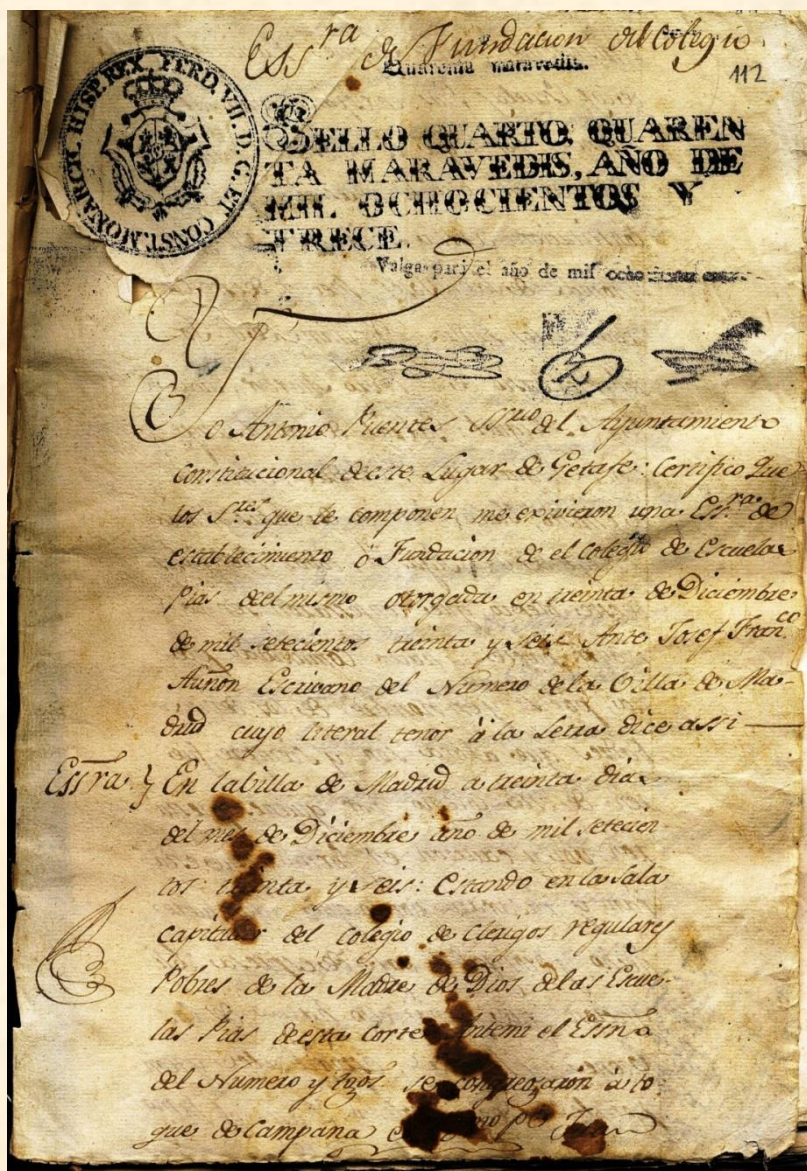 Ess.ra de Fundacion del Colegio
Quarenta maravedis.
112
FERD. VII. D. G. ET CONST. MONARCH. HISP. REX
SELLO QUARTO. QUAREN
TA MARAVEDIS, AÑO DE
MIL OCHOCIENTOS Y
TRECE.
Valga para el año de mil ocho
Yo Antonio Fuentes SS.rio del Ayuntamiento
Constitucional de este Lugar de Getafe: Certifico Que
los S.res que le componen me exivieron una Ess.ra de
establecimiento o Fundacion de el Colegio de Escuelas
Pias del mismo otorgada en treinta de Diciembre
de mil setecientos treinta y seis Ante Josef Fran.co
Auñon Escribano del Numero de la Villa de Ma-
drid cuyo literal tenor à la Letra dice assi
Essra } En la billa de Madrid a treinta dias
del mes de Diciembre año de mil setecien
tos treinta y seis: Estando en la Sala
capitular del Colegio de Clerigos regulares
Pobres de la Madre de Dios de las Escue-
las Pias de esta Corte Antemi el Essno
del Numero y tgos se congregaron à to
que de Campana